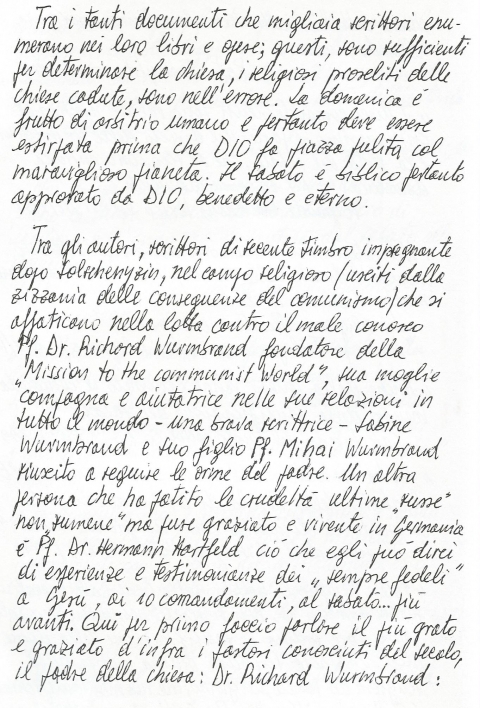 Tra i tanti documenti che migliaia scrittori enu-
merano nei loro libri e opere; questi, sono sufficienti
per determinare la chiesa, i religiosi proseliti delle
chiese cadute, sono nell'errore. La domenica é
frutto di arbitrio umano e pertanto deve essere
estirpata prima che DIO fa piazza pulita col
maraviglioso pianeta. Il sabato é biblico pertanto
approvato da DIO, benedetto e eterno.
Tra gli autori, scrittori di recente timbro impegnante
dopo Solschenyzin, nel campo religioso (usciti dalla
zizzania delle conseguenze del comunismo) che si
affaticono nella lotta contro il male conosco
Pf. Dr. Richard Wurmbrand fondatore della
„Mission to the communist World", sua moglie
compagna e aiutatrice nelle sue relazioni in
tutto il mondo - una brava scrittrice - Sabine
Wurmbrand e suo figlio Pf. Mihai Wurmbrand
riuscito a seguire le orme del padre. Un altra
persona che ha patito le crudeltá ultime „russe"
non „rumene" ma pure graziato e vivente in Germania
é Pf. Dr. Hermann Hartfeld ció che egli puó dirci
di esperienze e testimonianze dei „sempre fedeli"
a Gesú, ai 10 comandamenti, al sabato... piú
avanti. Qui per primo faccio parlare il piú grato
e graziato d'infra i pastori conosciuti del secolo,
il padre della chiesa: Dr. Richard Wurmbrand: